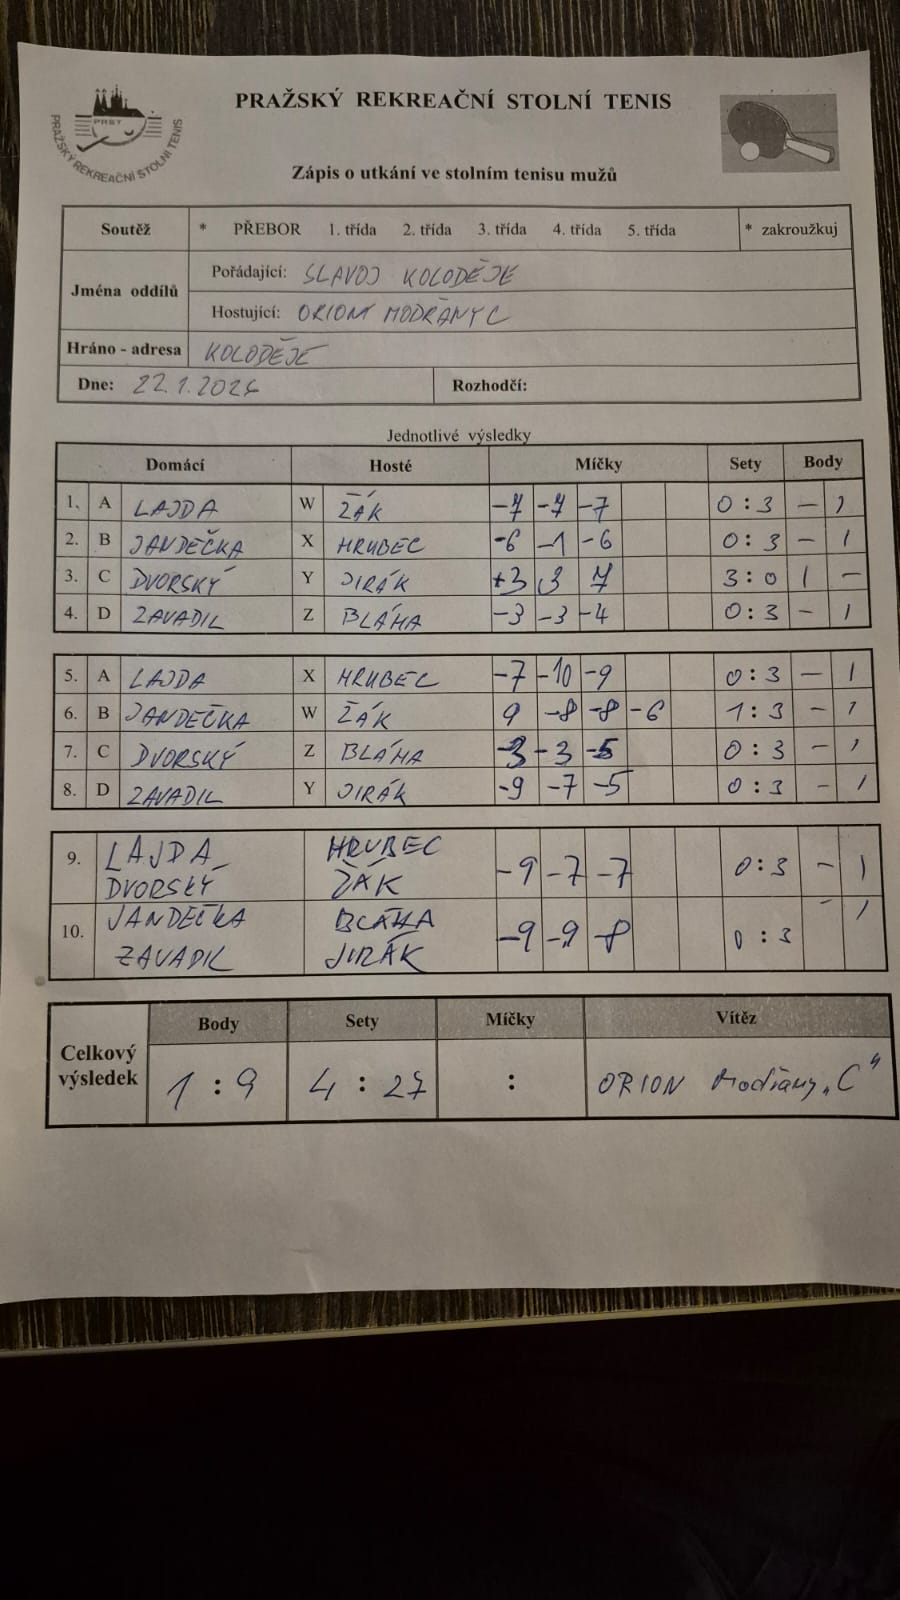 PRAŽSKÝ REKREAČNÍ STOLNÍ TENIS
PRST
PRAŽSKÝ REKREAČNÍ STOLNÍ TENIS
Zápis o utkání ve stolním tenisu mužů
Soutěž * PŘEBOR 1. třída 2. třída 3. třída 4. třída 5. třída * zakroužkuj
Jména oddílů
Pořádající: SLAVOJ KOLODĚJE
Hostující: ORION MODŘANY C
Hráno - adresa KOLODĚJE
Dne: 22.1.2026 Rozhodčí:
Jednotlivé výsledky
Domácí Hosté Míčky Sety Body
1. A LAJDA W ŽÁK -7 -7 -7 0:3 - 1
2. B JANDEČKA X HRUBEC -6 -1 -6 0:3 - 1
3. C DVORSKÝ Y JIRÁK +3 3 7 3:0 1 -
4. D ZAVADIL Z BLÁHA -3 -3 -4 0:3 - 1
5. A LAJDA X HRUBEC -7 -10 -9 0:3 - 1
6. B JANDEČKA W ŽÁK 9 -8 -8 -6 1:3 - 1
7. C DVORSKÝ Z BLÁHA -3 -3 -5 0:3 - 1
8. D ZAVADIL Y JIRÁK -9 -7 -5 0:3 - 1
9. LAJDA HRUBEC
DVORSKÝ ŽÁK -9 -7 -7 0:3 - 1
10. JANDEČKA BLÁHA - 1
ZAVADIL JIRÁK -9 -9 -8 0:3
Body Sety Míčky Vítěz
Celkový výsledek 1:9 4:27 : ORION Modřany „C"